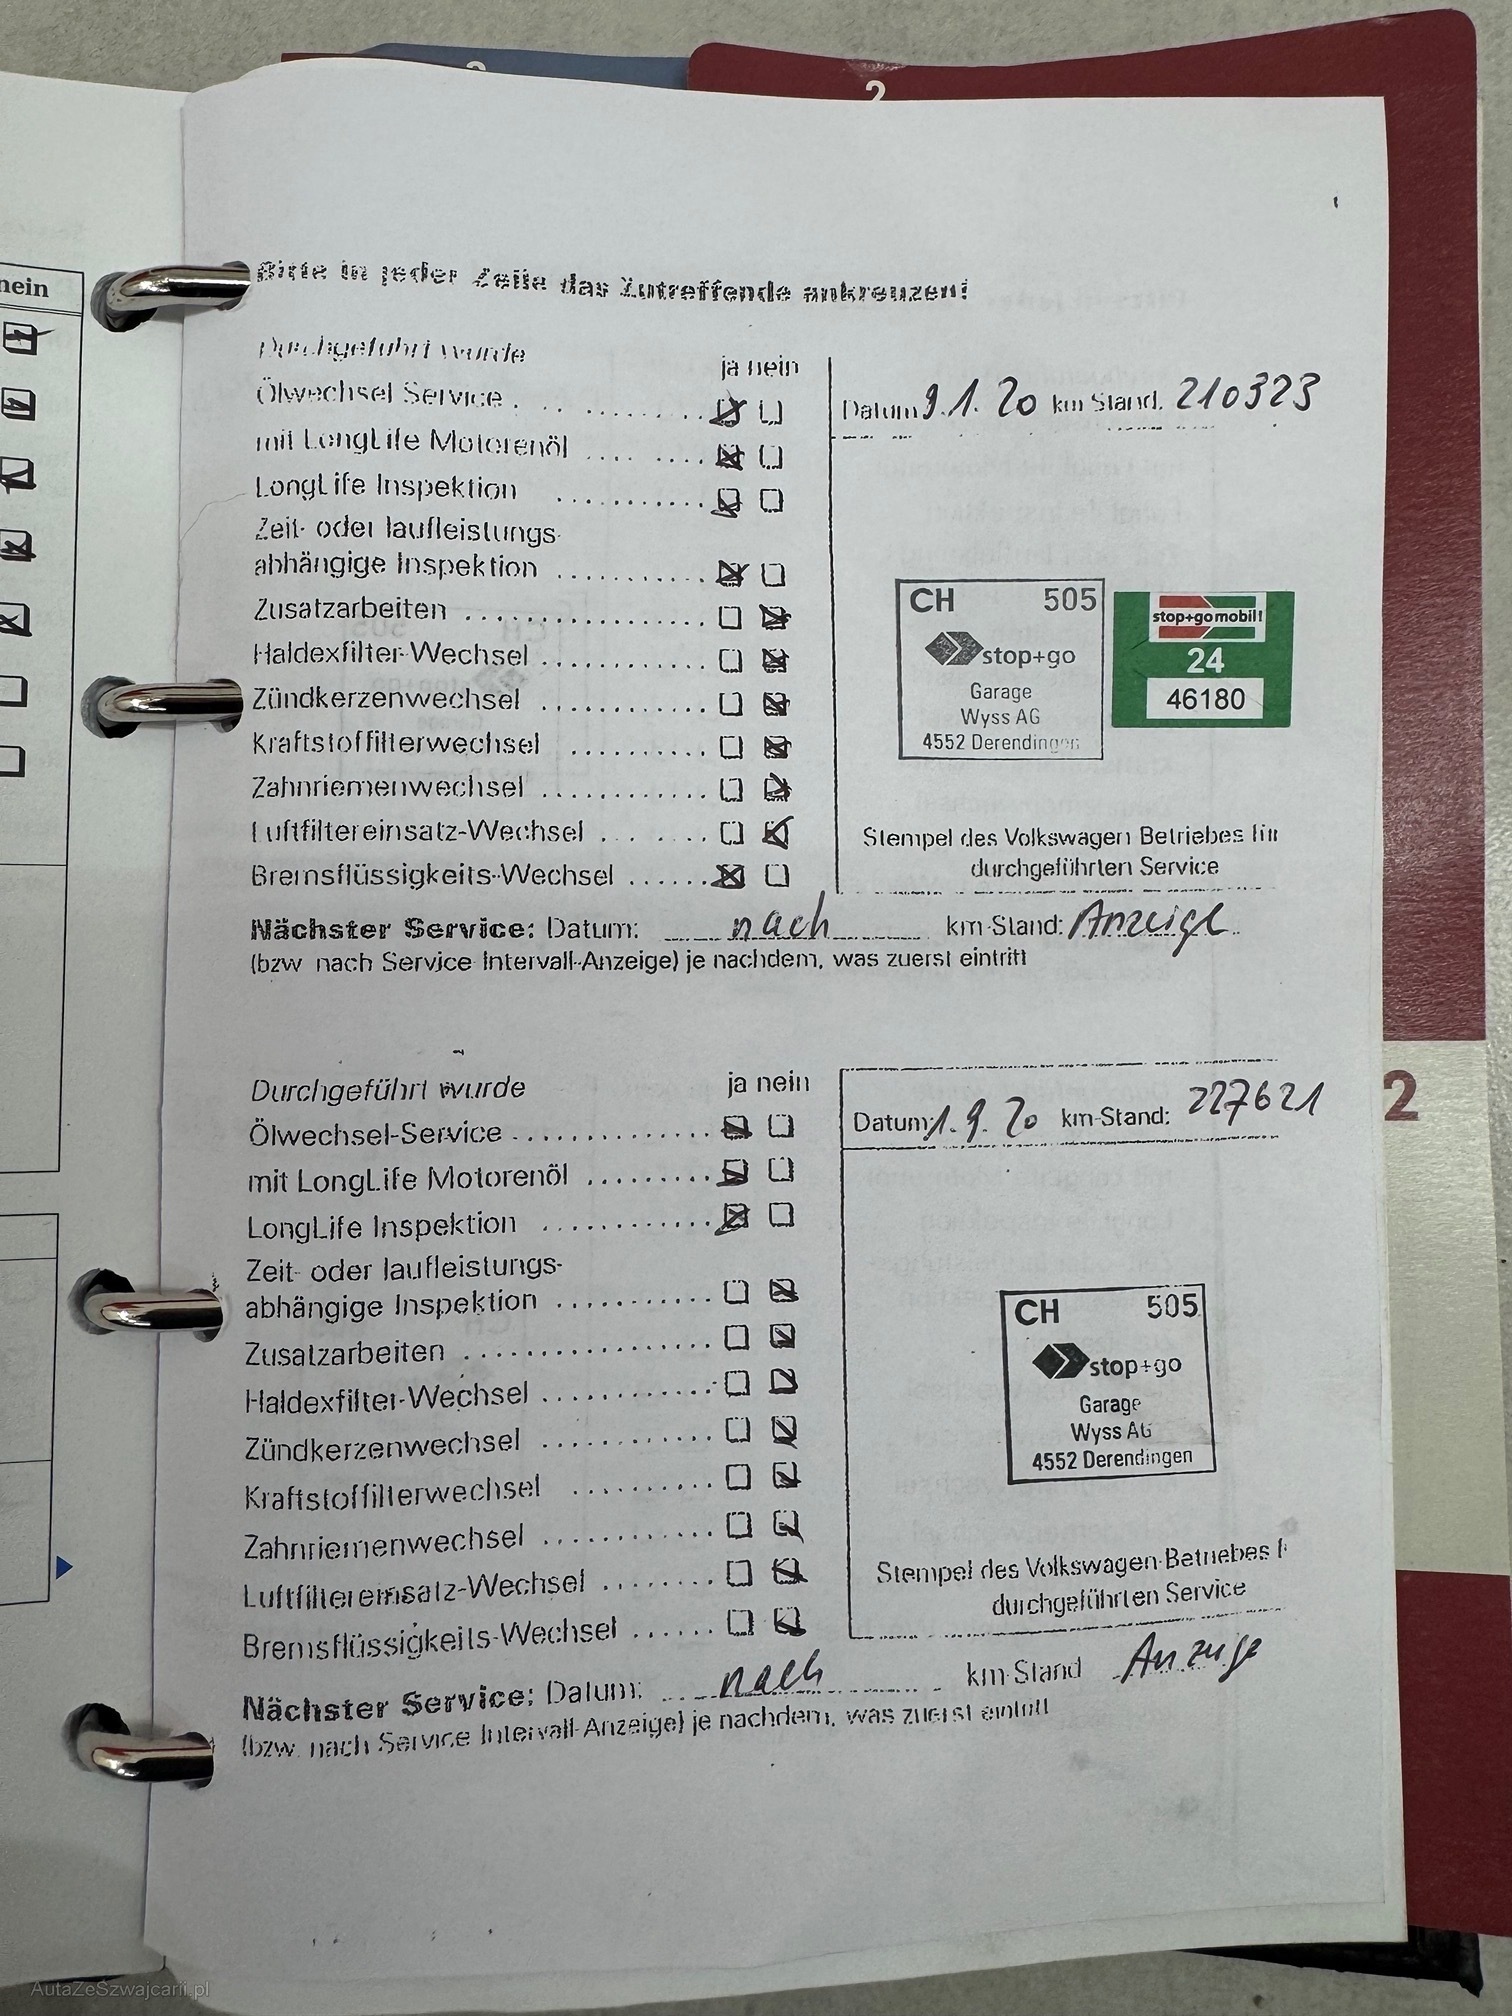 2
2
nein
Bitte in jeder Zeile das Zutreffende ankreuzen!
Durchgeführt wurde ja nein
Ölwechsel Service
mit LongLife Motorenöl
LongLife Inspektion
Zeit- oder laufleistungs-
abhängige Inspektion
Zusatzarbeiten
Haldexfilter-Wechsel
Zündkerzenwechsel
Kraftstoffilterwechsel
Zahnriemenwechsel
Luftfiltereinsatz-Wechsel
Bremsflüssigkeits-Wechsel
Datum 9.1.20 km Stand. 210323
CH 505
stop+go
Garage
Wyss AG
4552 Derendingen
stop+go mobil!
24
46180
Stempel des Volkswagen Betriebes für
durchgeführten Service
Nächster Service: Datum: nach km-Stand: Anzeige
(bzw nach Service Intervall-Anzeige) je nachdem, was zuerst eintritt
Durchgeführt wurde ja nein
Ölwechsel-Service
mit LongLife Motorenöl
LongLife Inspektion
Zeit- oder laufleistungs-
abhängige Inspektion
Zusatzarbeiten
Haldexfilter-Wechsel
Zündkerzenwechsel
Kraftstoffilterwechsel
Zahnriemenwechsel
Luftfiltereinsatz-Wechsel
Bremsflüssigkeits-Wechsel
Datum: 1.9.20 km-Stand: 227621
2
CH 505
stop+go
Garage
Wyss AG
4552 Derendingen
Stempel des Volkswagen-Betriebes f
durchgeführten Service
Nächster Service: Datum: nach km-Stand Anzeige
(bzw. nach Service Intervall-Anzeige) je nachdem, was zuerst eintritt
AutaZeSzwajcarii.pl